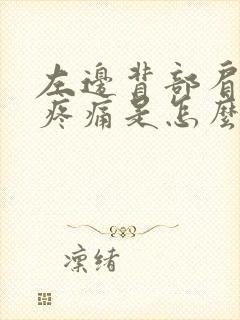 左邊背部肩
疼痛是怎麼
凜緒